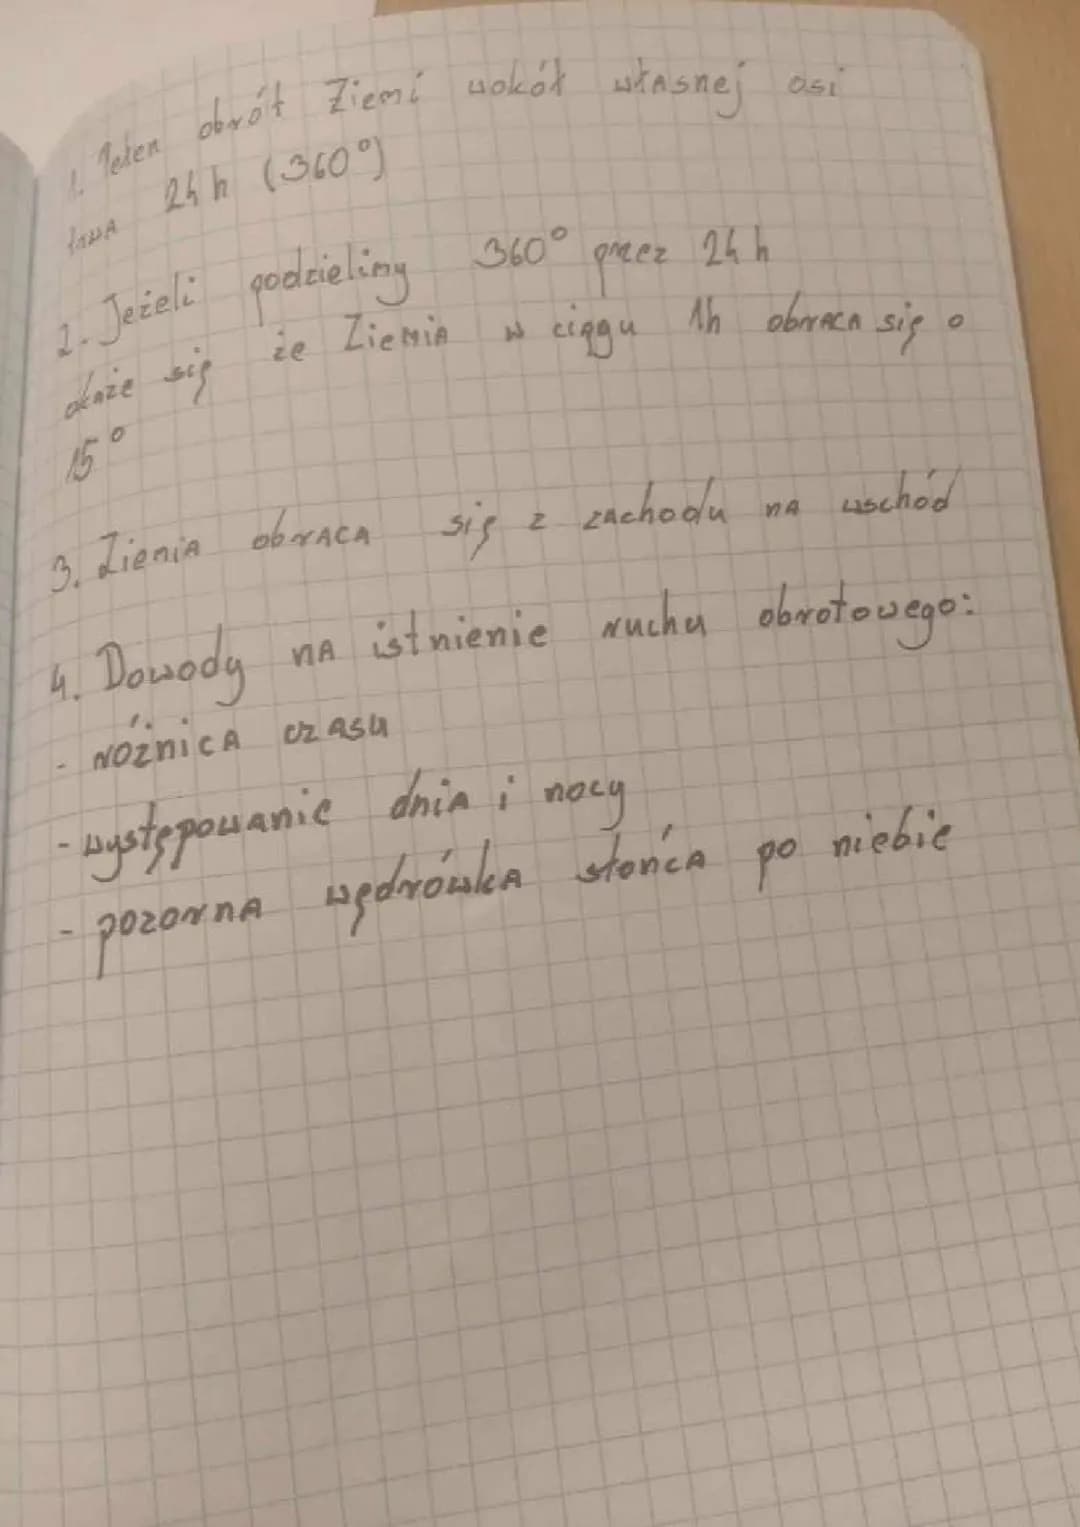 1. Jeden obrót Ziemi wokół własnej osi
trwa 24 h (360°)
2. Jeżeli podzielimy 360° przez 24 h
okaże się że Ziemia w ciągu 1h obraca się o
15°
3. Ziemia obraca się z zachodu na wschód
4. Dowody na istnienie ruchu obrotowego:
- różnica czasu
- występowanie dnia i nocy
- pozorna wędrówka słońca po niebie